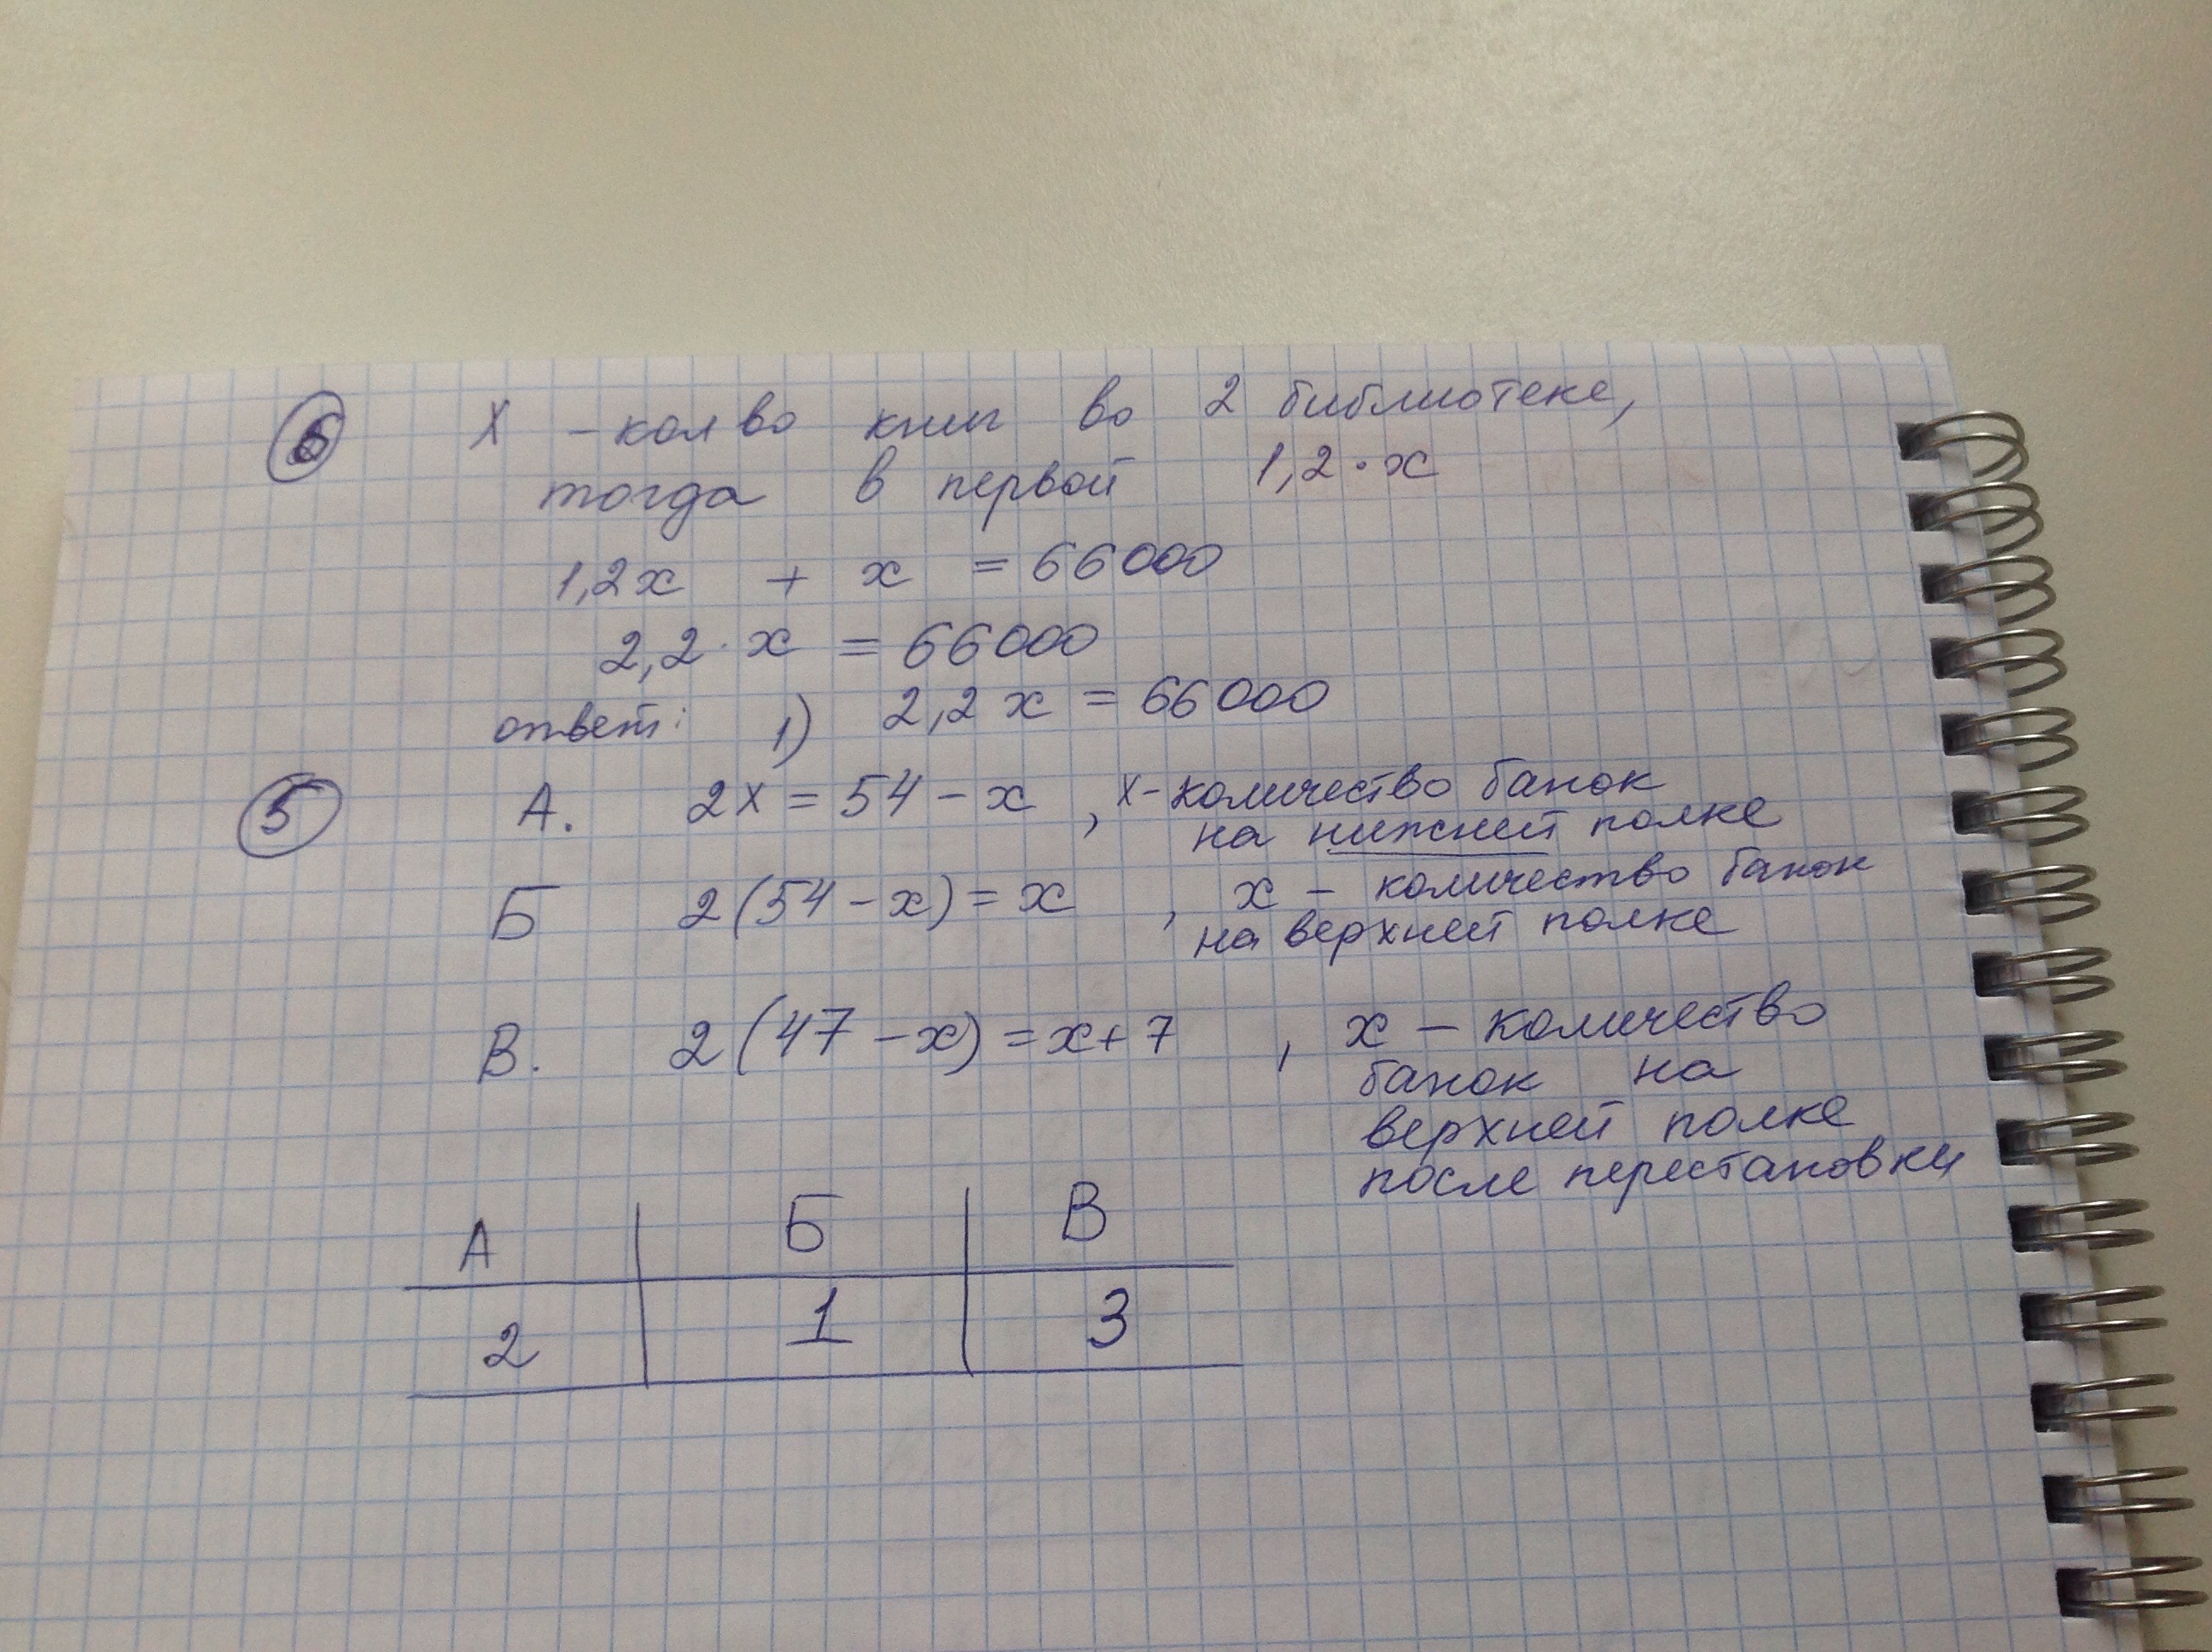 6 х - кол во книг во 2 библиотеке,
тогда в первой 1,2·х
1,2х + х = 66000
2,2·х = 66000
ответ: 1) 2,2х = 66000
5 А. 2х = 54 - х , х - количество банок
на нижней полке
Б 2(54 - х) = х , х - количество банок
на верхней полке
В. 2(47 - х) = х + 7 , х - количество
банок на
верхней полке
после перестановки
А Б В
2 1 3